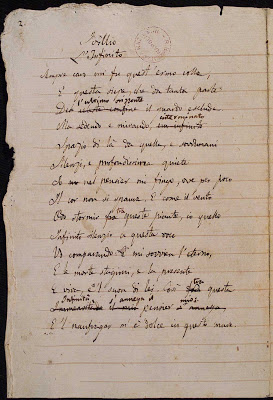 2.
Idillio
L'Infinito
Sempre caro mi fu quest'ermo colle,
E questa siepe, che da tanta parte
l'ultimo orizzonte
Del celeste confine il guardo esclude.
interminato
Ma sedendo e mirando, un infinito
Spazio di là da quella, e sovrumani
Silenzi, e profondissima quiete
Io nel pensier mi fingo, ove per poco
Il cor non si spaura. E come il vento
Odo stormir tra queste piante, io quello
Infinito silenzio a questa voce
Vo comparando: E mi sovvien l'eterno,
E le morte stagioni, e la presente
E viva, e 'l suon di lei. Così tra questa
Infinità s'annega il mio
Immensitade il mio pensier s'annega,
E 'l naufragar m'è dolce in questo mare.